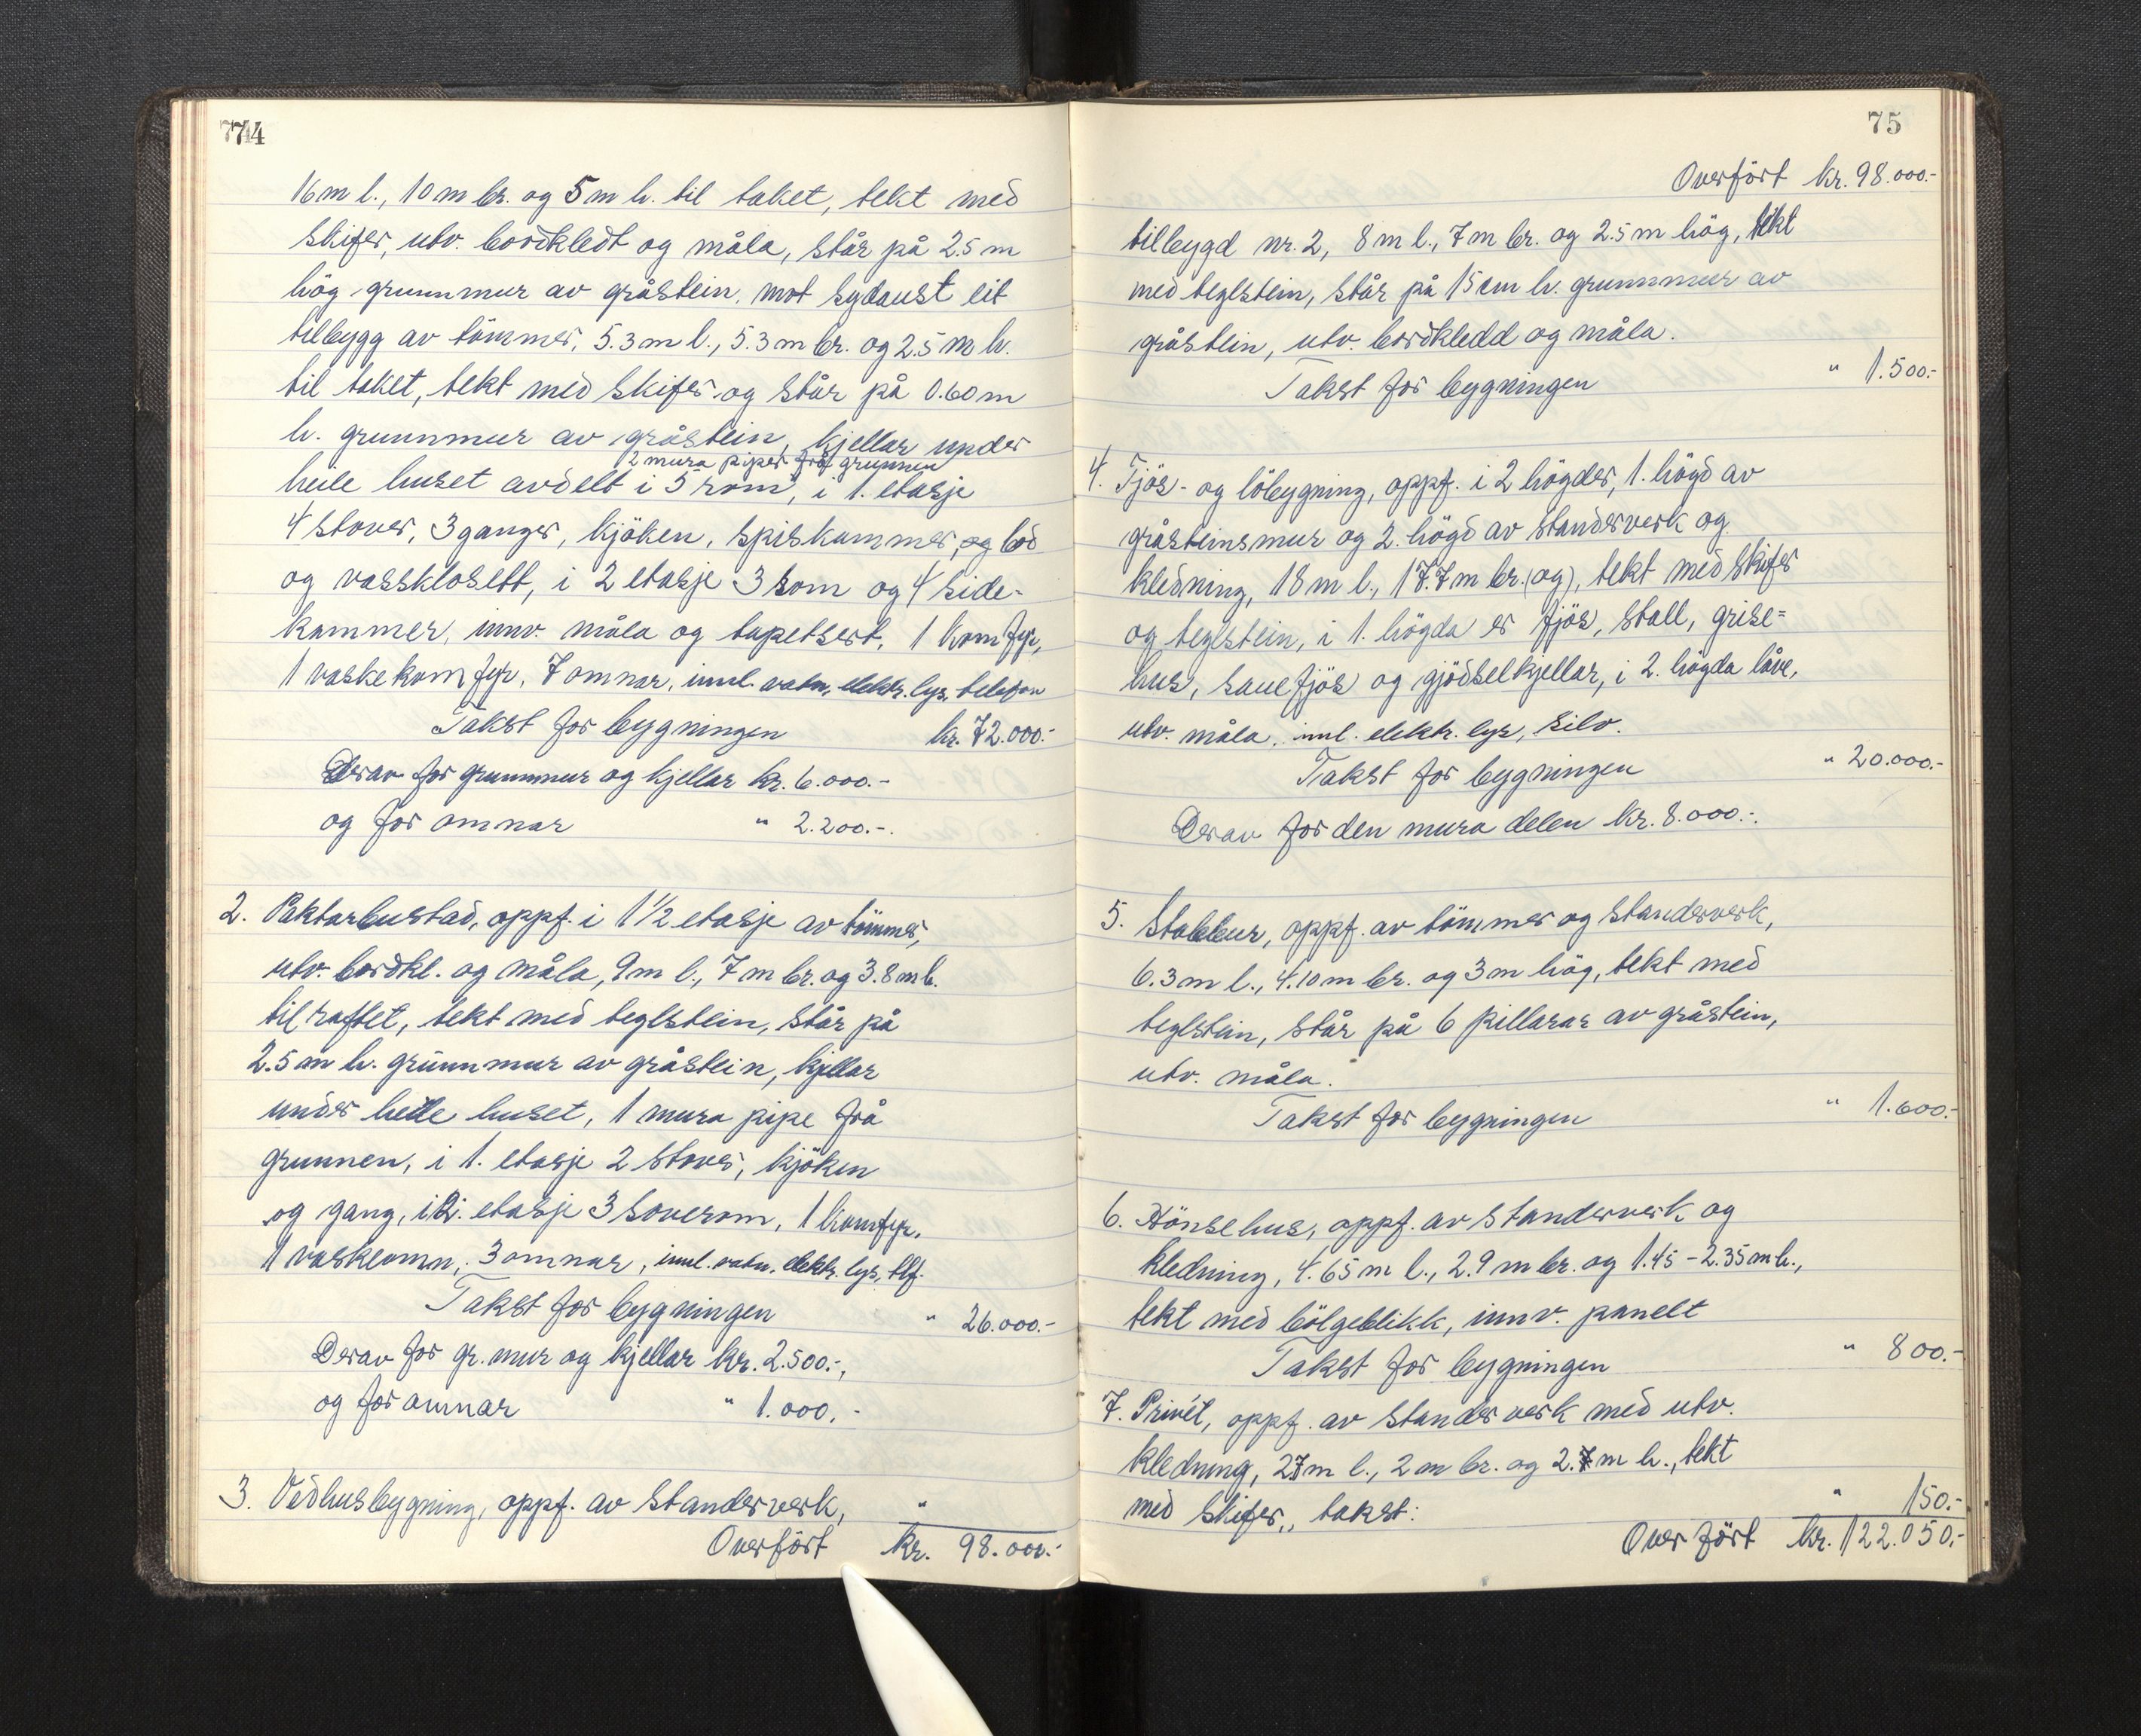 74
16 m l., 10 m br. og 5 m h. til taket, tekt med
skifer, utv. bordkledt og måla, står på 2.5 m
hög grunnmur av gråstein. mot sydaust eit
tilbygg av tömmer, 5.3 m l., 5.3 m br. og 2.5 m h.
til taket, tekt med skifer og står på 0.60 m
h. grunnmur av gråstein, kjellar under
2 mura piper frå grunnen
heile huset avdelt i 5 rom, i 1. etasje
4 stover, 3 ganger, kjöken, spiskammer, og bad
og vassklosett, i 2 etasje 3 rom og 4 side-
kammer, innv. måla og tapetsert, 1 komfyr,
1 vaskekomfyr, 7 omnar, innl. vatn, elektr. lys, telefon
Takst for bygningen kr. 72.000.-
Derav for grunnmur og kjellar kr. 6.000.-
og for omnar " 2.200.-.
2. Paktarbustad, oppf. i 1 1/2 etasje av tömmer,
utv. bordkl. og måla, 9 m l., 7 m br. og 3.8 m h.
til raftet, tekt med teglstein, står på
2.5 m h. grunnmur av gråstein, kjellar
under heile huset, 1 mura pipe frå
grunnen, i 1. etasje 2 stover, kjöken
og gang, i 2. etasje 3 soverom, 1 komfyr,
1 vaskeomn, 3 omnar, innl. vatn, elektr. lys, tlf.
Takst for bygningen " 26.000.-
Derav for gr. mur og kjellar kr. 2.500.-,
og for omnar " 1.000.-
3. Vedhusbygning, oppf. av standerverk, "
Overfört kr. 98.000.-
75
Overfört kr. 98.000.-
tilbygd nr. 2, 8 m l., 7 m br. og 2.5 m hög, tekt
med teglstein, står på 15 cm h. grunnmur av
gråstein, utv. bordkledd og måla.
Takst for bygningen " 1.500.-
4. Fjös- og löbygning, oppf. i 2 högder, 1. högd av
gråsteinsmur og 2. högd av standerverk og
kledning, 18 m l., 17.7 m br. (og), tekt med skifer
og teglstein, i 1. högda er fjös, stall, grise-
hus, sauefjös og gjödselkjellar, i 2. högda låve,
utv. måla, innl. elektr. lys, silo.
Takst for bygningen " 20.000.-
Derav for den mura delen kr. 8.000.-.
5. Stabbur, oppf. av tömmer og standerverk,
6.3 m l., 4.10 m br. og 3 m hög, tekt med
teglstein, står på 6 pillarar av gråstein,
utv. måla.
Takst for bygningen " 1.600.-
6. Hönsehus, oppf. av standerverk og
kledning, 4.65 m l., 2.9 m br. og 1.45 - 2.35 m h.,
tekt med bölgeblikk, innv. panelt
Takst for bygningen " 800.-
7. Privét, oppf. av standerverk med utv.
kledning, 2.7 m l., 2 m br. og 2.7 m h., tekt
med skifer,, takst: " 150.-
Overfört kr. 122.050.-